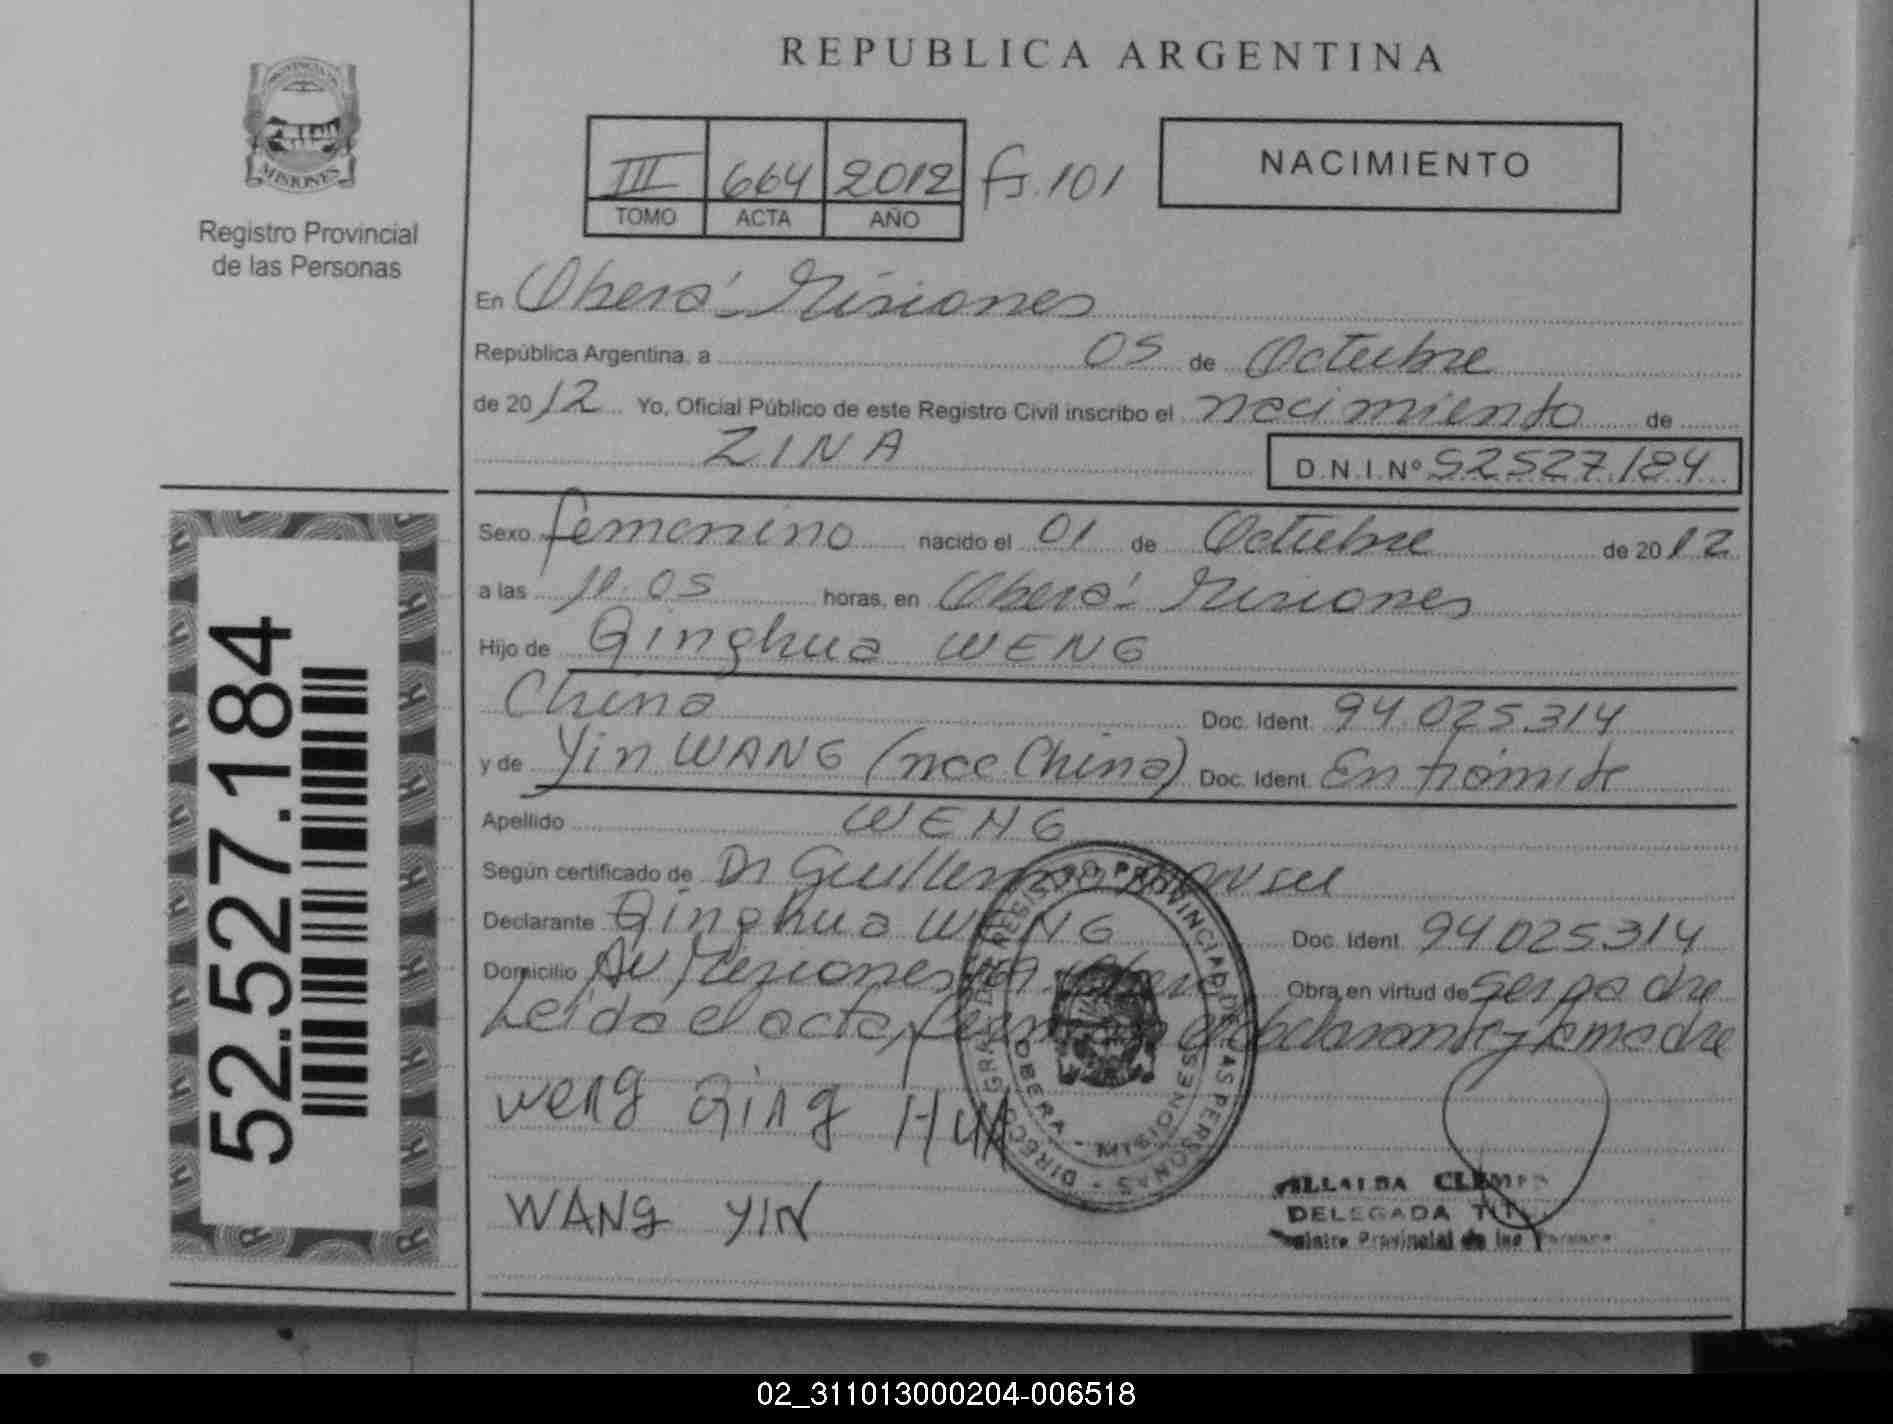 PROVINCIA DE
MISIONES
Registro Provincial
de las Personas
52.527.184
REPUBLICA ARGENTINA
III 664 2012 fs. 101
TOMO ACTA AÑO
NACIMIENTO
En Oberá - Misiones
República Argentina, a 05 de Octubre
de 2012 Yo, Oficial Público de este Registro Civil inscribo el nacimiento de
ZINA D.N.I.Nº 52527.184
Sexo femenino nacido el 01 de Octubre de 2012
a las 11.05 horas, en Oberá - Misiones
Hijo de Qinghua WENG
China Doc. Ident. 94.025.314
y de Yin WANG (nac. China) Doc. Ident. En trámite
Apellido WENG
Según certificado de Dr Guillermo
Declarante Qinghua WENG Doc. Ident. 94025314
Domicilio Av Misiones Oberá Obra en virtud de ser padre
Leída el acta, firman el declarante y la madre
weng Qing HUA
WANG YIN
DIRECC. GRAL. DEL REGISTRO PROVINCIAL DE LAS PERSONAS
OBERA - MISIONES
VILLALBA
DELEGADA TIT
Registro Provincial de las Personas
02_311013000204-006518